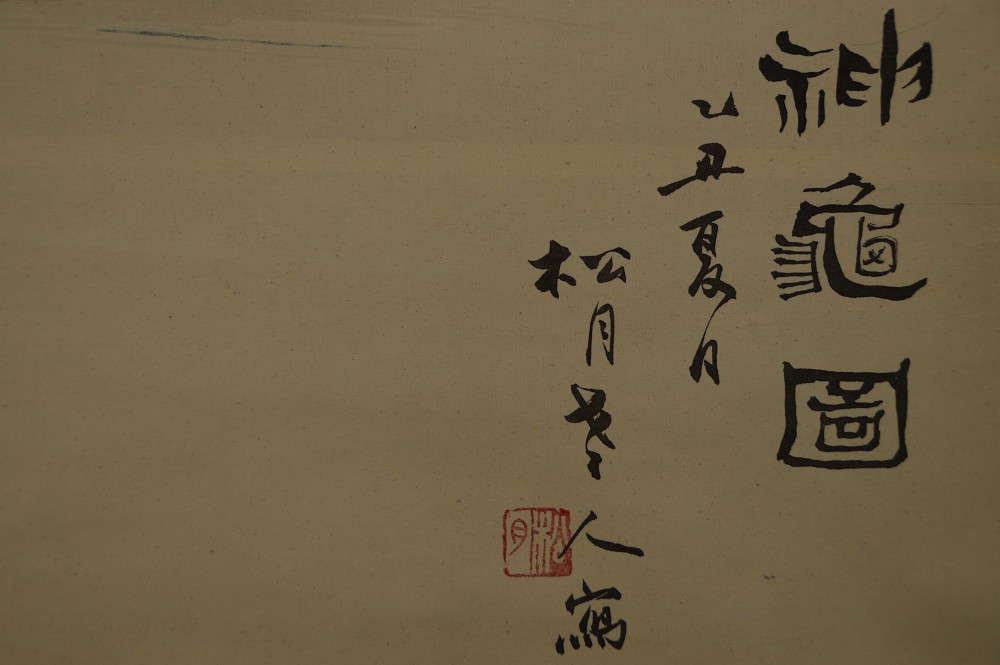 神龜圖
乙丑夏日
松月老人寫
松月